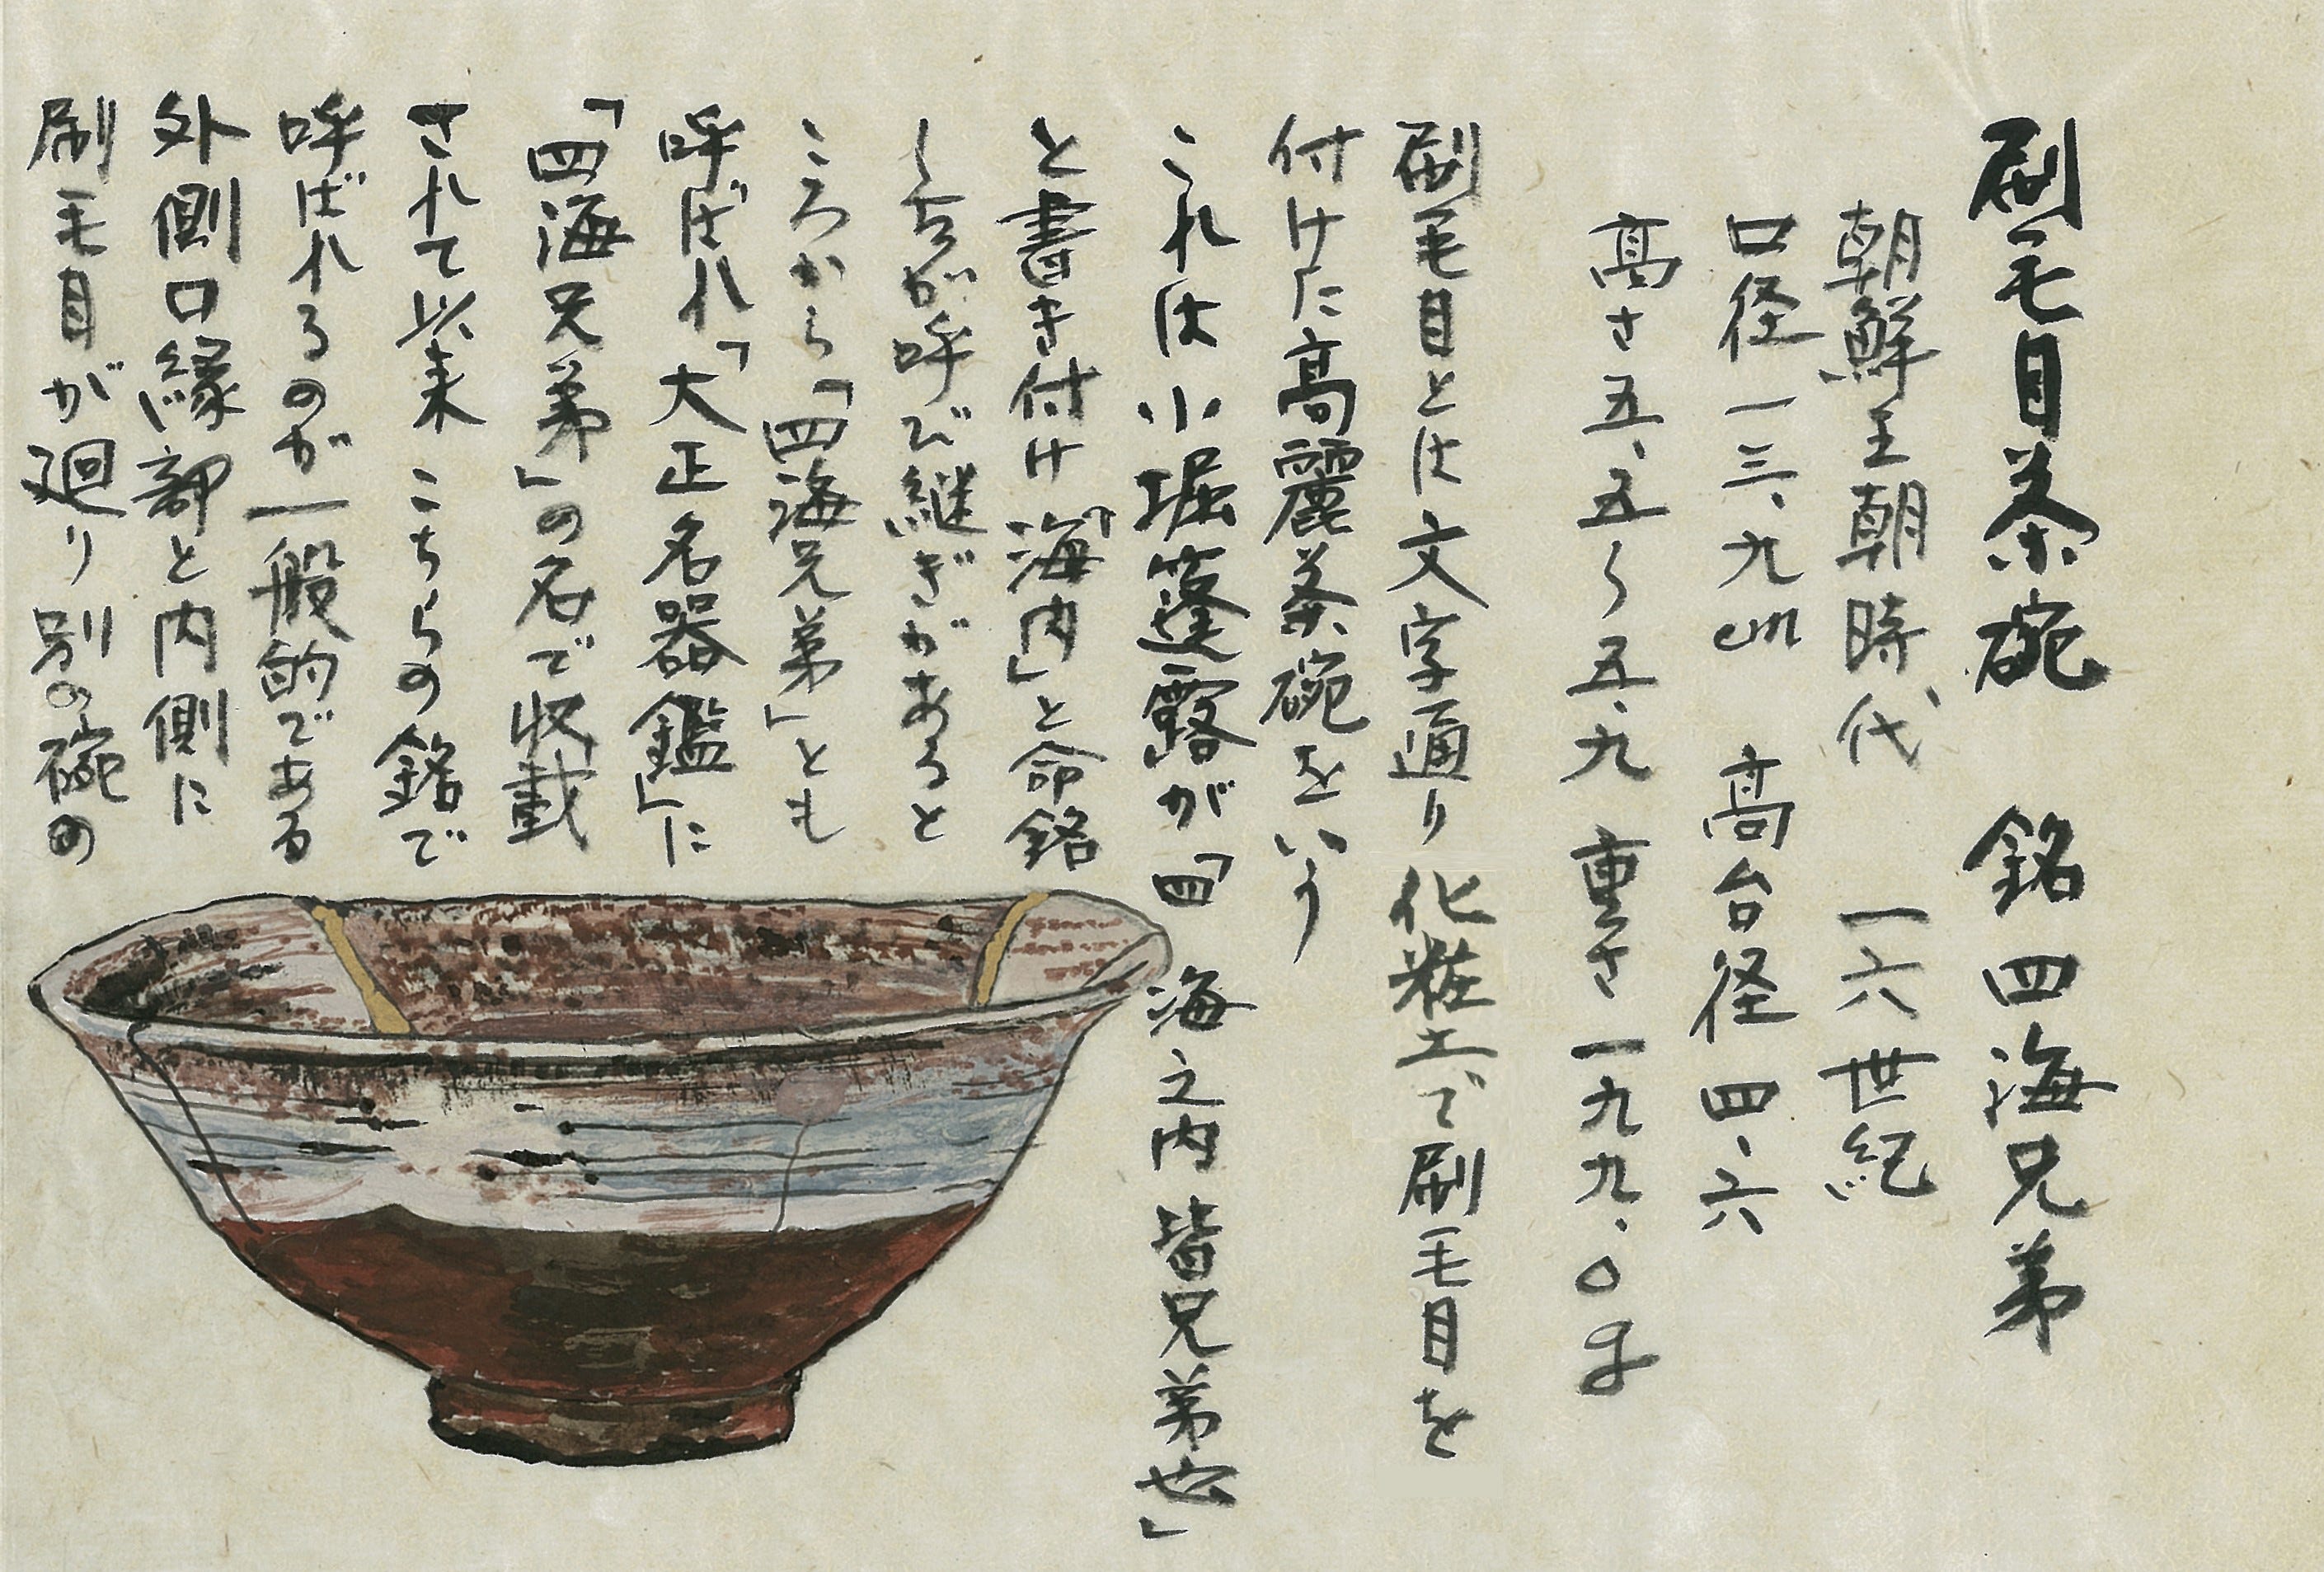 刷毛目茶碗 銘 四海兄弟
朝鮮王朝時代 一六世紀
口径一三、九cm 高台径四、六
高さ五、五〜五、九 重さ一九九、〇g
刷毛目とは文字通り化粧土で刷毛目を
付けた高麗茶碗をいう
これは小堀篷露が「四海之内皆兄弟也」
と書き付け「海内」と命銘
し が呼び継ぎがあると
ころから「四海兄弟」とも
呼ばれ「大正名器鑑」に
「四海兄弟」の名で収載
されて以来こちらの銘で
呼ばれるのが一般的である
外側口縁部と内側に
刷毛目が廻り別の碗の